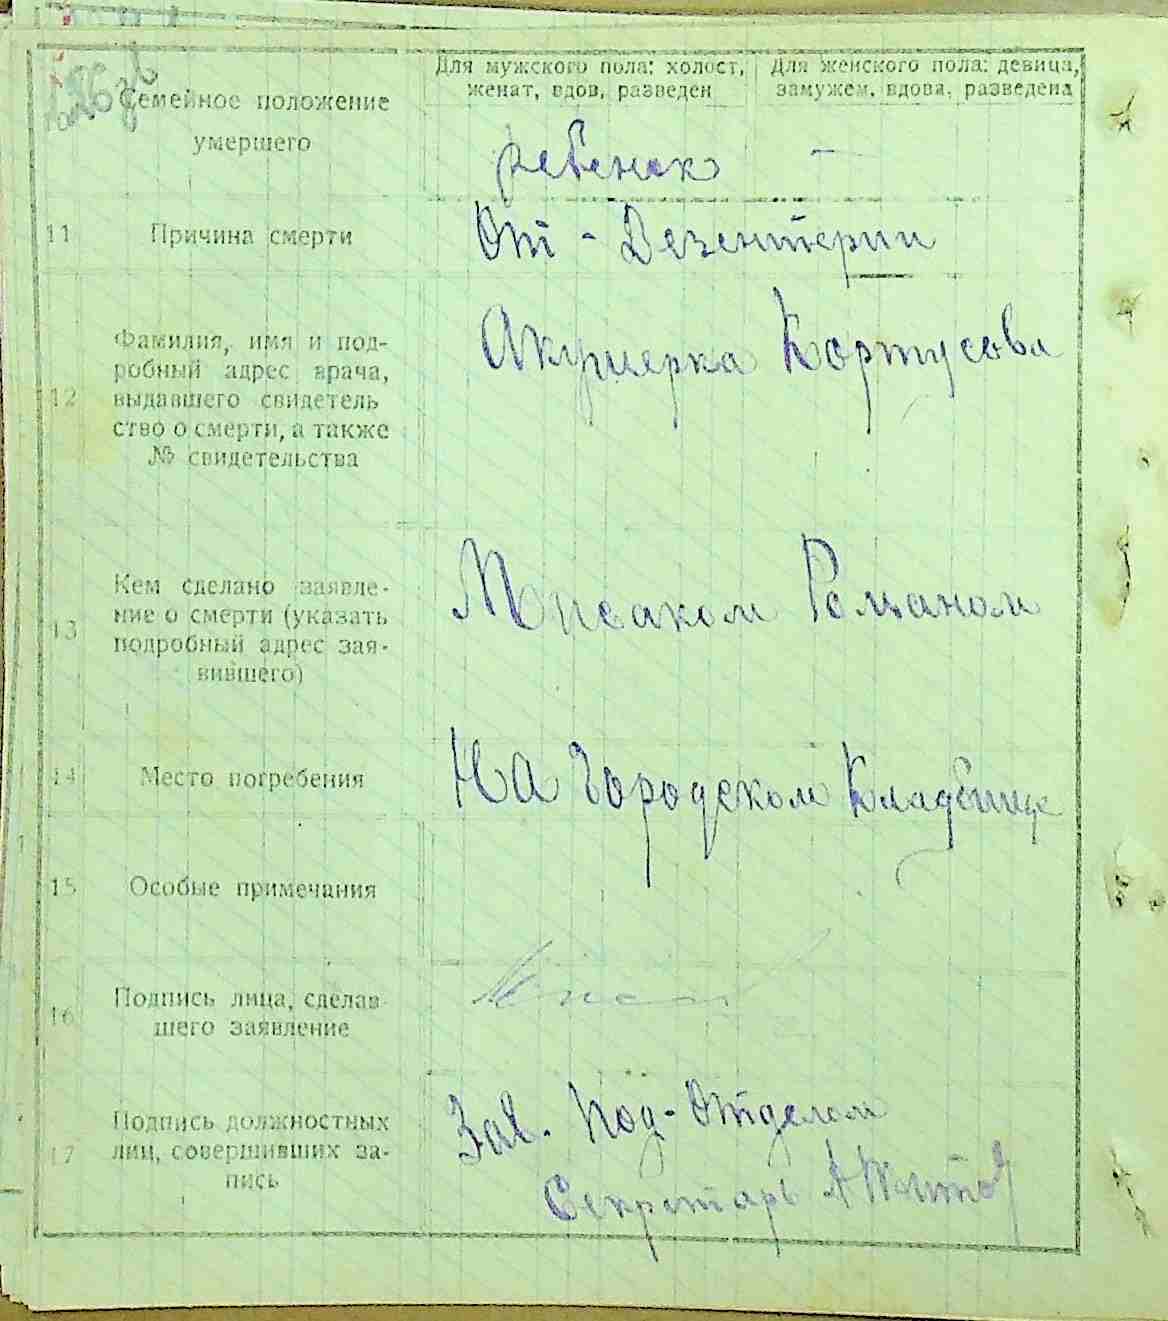 Для мужского пола: холост, женат, вдов, разведен
Для женского пола: девица, замужем, вдова, разведена
Семейное положение умершего
ребенок -
11 Причина смерти
От - Дезентерии
12 Фамилия, имя и под-
робный адрес врача,
выдавшего свидетель
ство о смерти, а также
№ свидетельства
Акушерка Кортусова
13 Кем сделано заявле-
ние о смерти (указать
подробный адрес зая-
вившего)
Романом
14 Место погребения
На Городском Кладбище
15 Особые примечания
16 Подпись лица, сделав
шего заявление
17 Подпись должностных
лиц, совершивших за-
пись
Зав. Под-Отделом
Секретарь